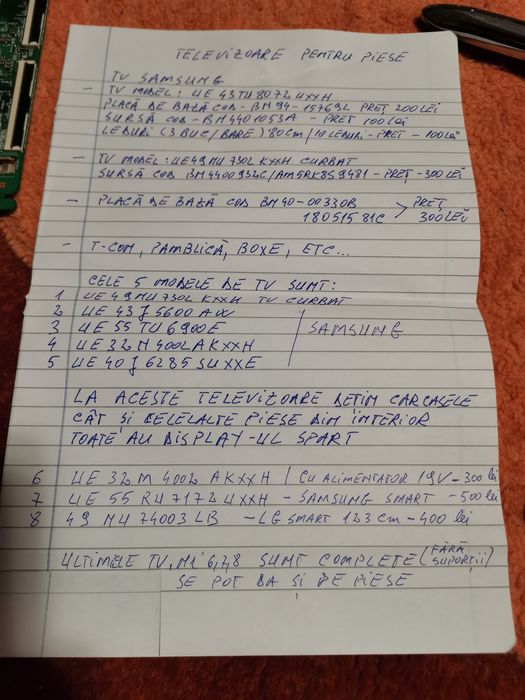 TELEVIZOARE PENTRU PIESE
TV SAMSUNG
- TV MODEL: UE 43TU8072UXXH
PLACĂ DE BAZĂ COD - BM94-15769L PREȚ 200 LEI
SURSĂ COD - BM4401053A - PREȚ 100 LEI
LEDURI (3 BUC/BARE) 80cm/10 LEDURI - PREȚ - 100 LEI
- TV MODEL: UE49MU7302KXXH CURBAT
SURSĂ COD BM4400932C/AM5RK8S9481 - PREȚ - 300 LEI
- PLACĂ DE BAZĂ COD BM40-00330B > PREȚ
18051581C 300 LEI
- T-COM, PAMBLICĂ, BOXE, ETC...
CELE 5 MODELE DE TV SUNT:
1 UE 49MU730L KXXH TV CURBAT
2 UE 43 J 5600 AW
3 UE 55 TU 6900E SAMSUNG
4 UE 32M 400LAKXXH
5 UE 40 J 6285 SUXXE
LA ACESTE TELEVIZOARE DETIN CARCASELE
CÂT SI CELELALTE PIESE DIN INTERIOR
TOATE AU DISPLAY-UL SPART
6 UE 32 M 4002 AKXXH / CU ALIMENTATOR 19V - 300 lei
7 UE 55 RU 7172 UXXH - SAMSUNG SMART - 500 lei
8 49 MU 74003 LB - LG SMART 123 cm - 400 lei
ULTIMELE TV, N1 6,7,8 SUNT COMPLETE (FĂRĂ SUPORȚII)
SE POT DA SI PE PIESE